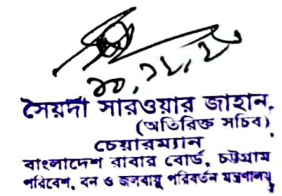 সৈয়দা সারওয়ার জাহান,
(অতিরিক্ত সচিব)
চেয়ারম্যান
বাংলাদেশ রাবার বোর্ড, চট্টগ্রাম
পরিবেশ, বন ও জলবায়ু পরিবর্তন মন্ত্রণালয়